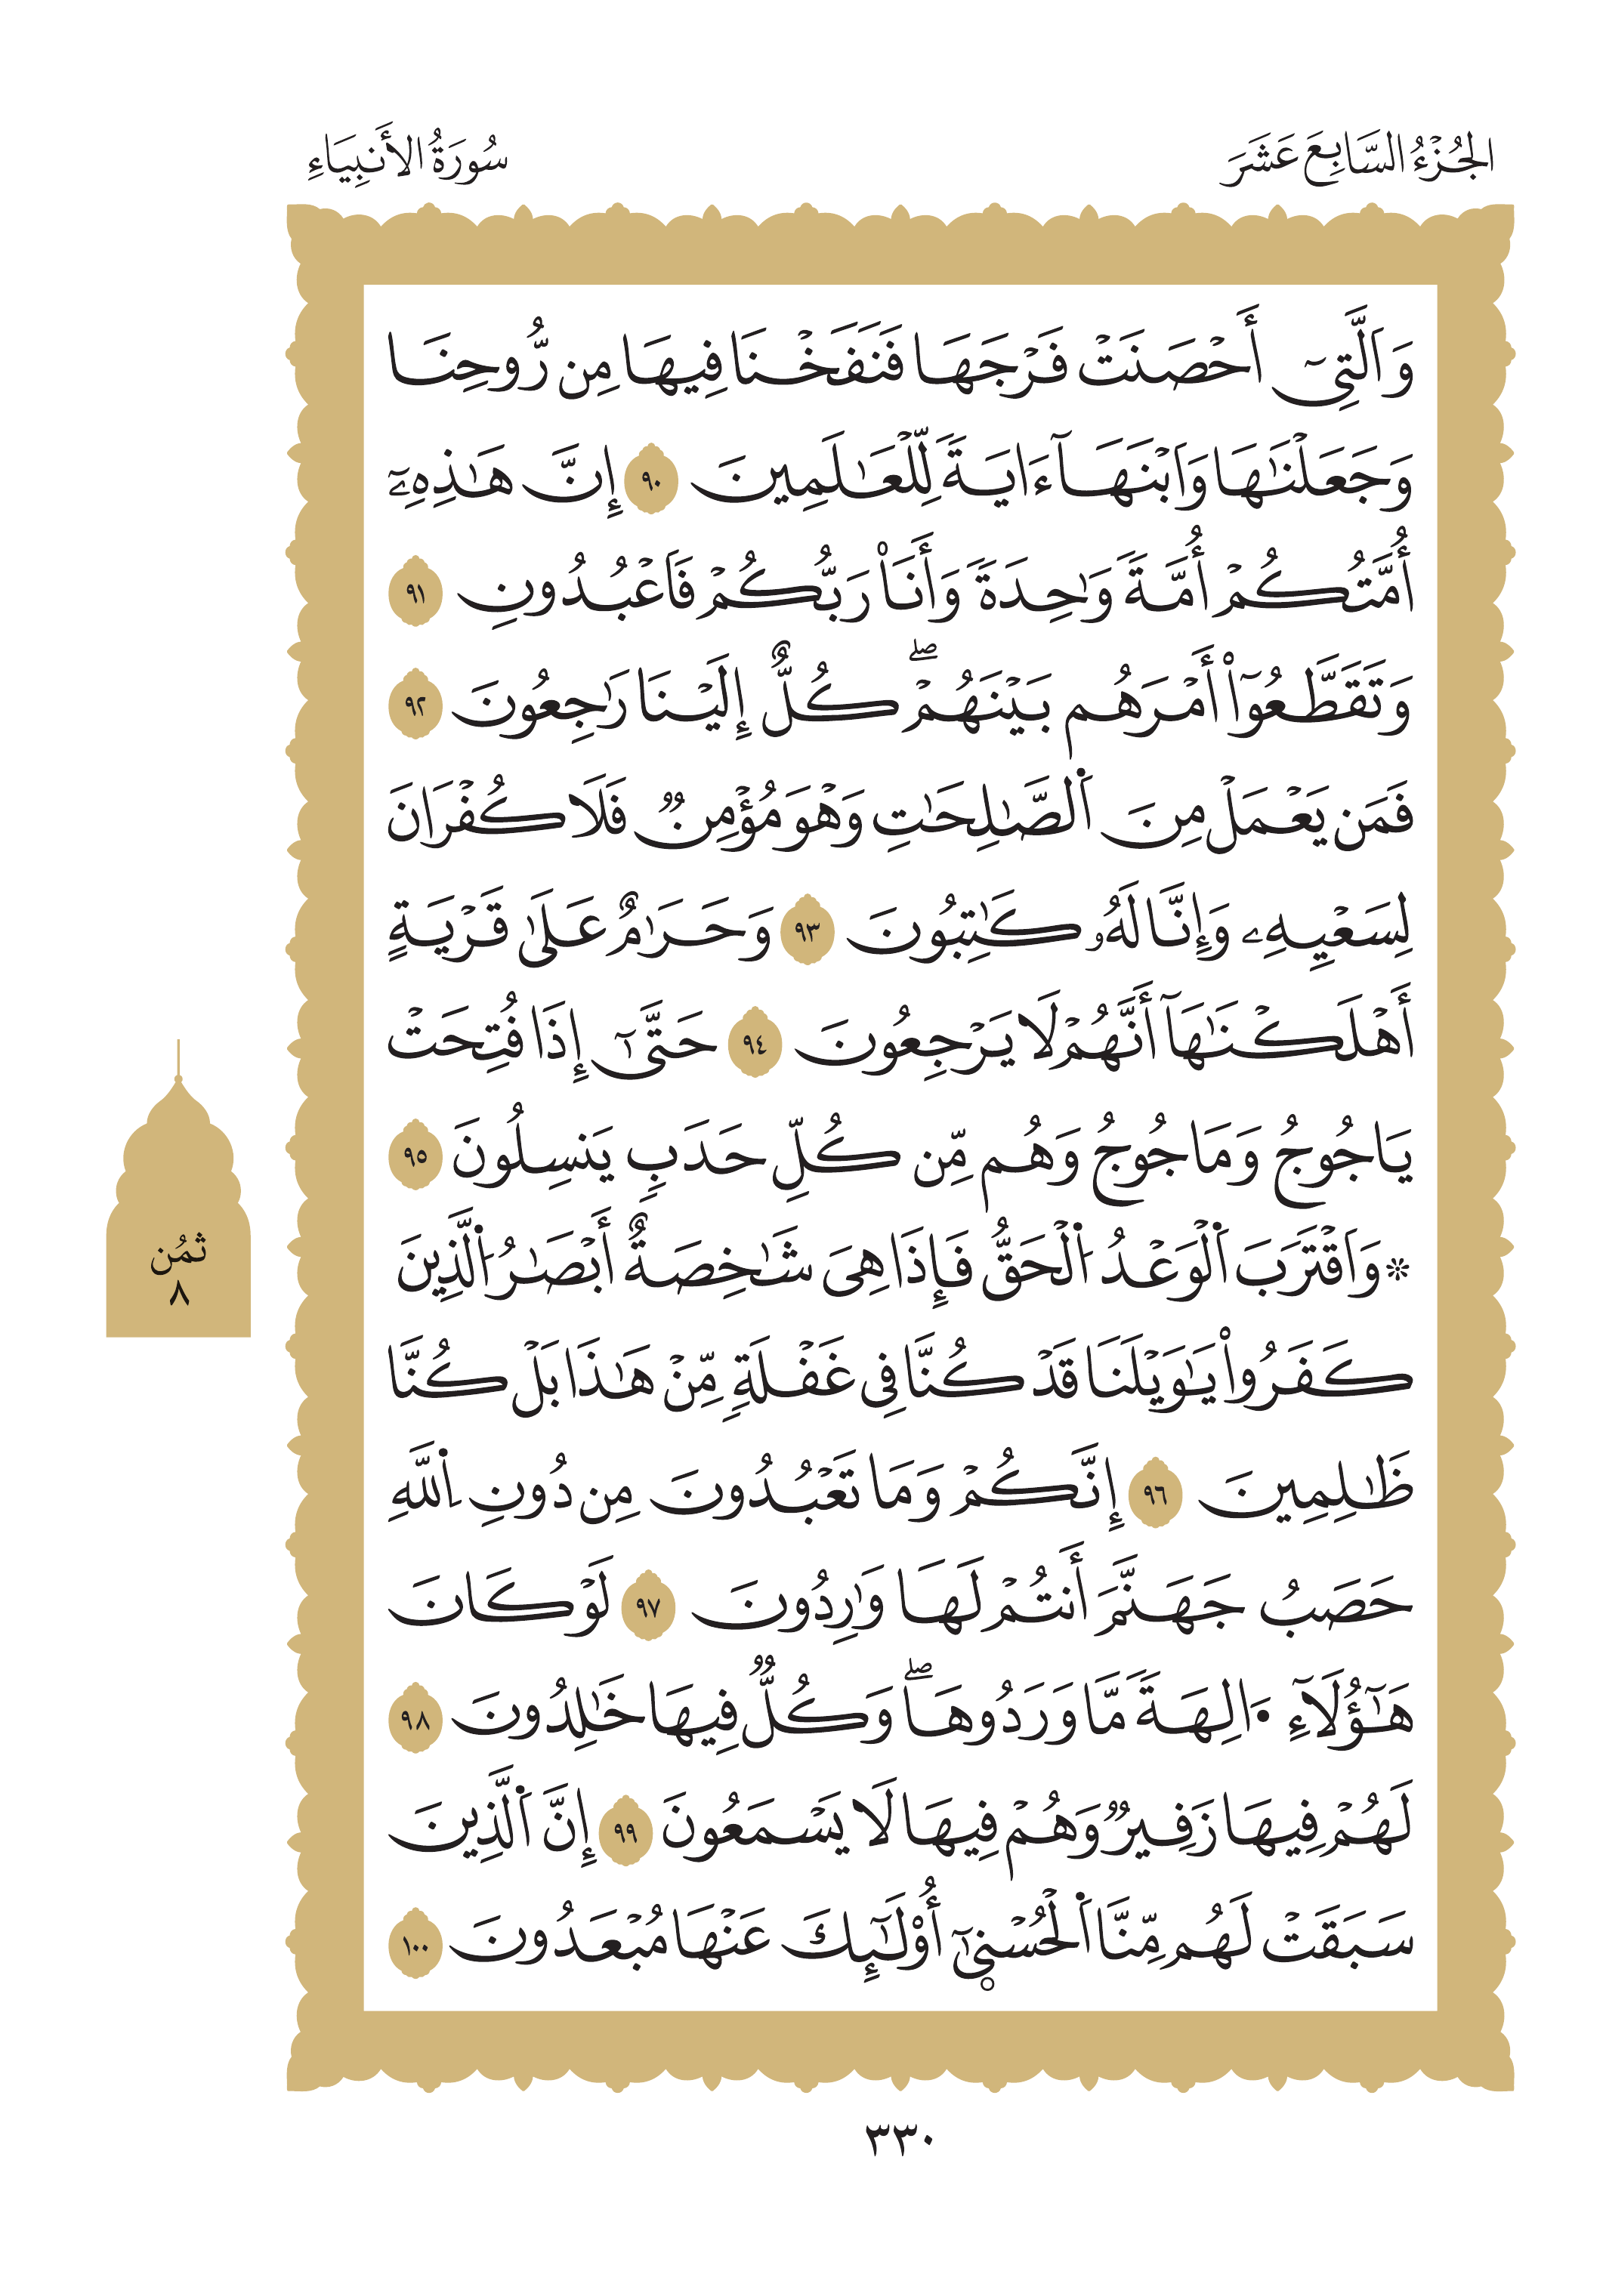 الجُزْءُ السَّابِعَ عَشَرَ
سُورَةُ الأَنبِيَاءِ
وَاَلَّتِىٓ أَحْصَنَتْ فَرْجَهَا فَنَفَخْنَا فِيهَا مِن رُّوحِنَا
وَجَعَلْنَٰهَا وَاَبْنَهَآ ءَايَةً لِّلْعَٰلَمِينَ ٩٠ إِنَّ هَٰذِهِۦٓ
أُمَّتُكُمْ أُمَّةً وَٰحِدَةً وَأَنَا۠ رَبُّكُمْ فَاَعْبُدُونِ ٩١
وَتَقَطَّعُوٓاْ أَمْرَهُم بَيْنَهُمْۖ كُلٌّ إِلَيْنَا رَٰجِعُونَ ٩٢
فَمَن يَعْمَلْ مِنَ اَ۬لصَّٰلِحَٰتِ وَهْوَ مُؤْمِنٞ فَلَا كُفْرَانَ
لِسَعْيِهِۦ وَإِنَّا لَهُۥ كَٰتِبُونَ ٩٣ وَحَرَٰمٌ عَلَىٰ قَرْيَةٍ
أَهْلَكْنَٰهَآ أَنَّهُمْ لَا يَرْجِعُونَ ٩٤ حَتَّىٰٓ إِذَا فُتِحَتْ
يَاجُوجُ وَمَاجُوجُ وَهُم مِّن كُلِّ حَدَبٖ يَنسِلُونَ ٩٥
۞ وَاَقْتَرَبَ اَ۬لْوَعْدُ اُ۬لْحَقُّ فَإِذَا هِىَ شَٰخِصَةٌ أَبْصَٰرُ اُ۬لَّذِينَ
كَفَرُواْ يَٰوَيْلَنَا قَدْ كُنَّا فِى غَفْلَةٖ مِّنْ هَٰذَا بَلْ كُنَّا
ظَٰلِمِينَ ٩٦ إِنَّكُمْ وَمَا تَعْبُدُونَ مِن دُونِ اِ۬للَّهِ
حَصَبُ جَهَنَّمَ أَنتُمْ لَهَا وَٰرِدُونَ ٩٧ لَوْ كَانَ
هَٰٓؤُلَآءِ ا۬لِهَةً مَّا وَرَدُوهَاۖ وَكُلّٞ فِيهَا خَٰلِدُونَ ٩٨
لَهُمْ فِيهَا زَفِيرٞ وَهُمْ فِيهَا لَا يَسْمَعُونَ ٩٩ إِنَّ اَ۬لَّذِينَ
سَبَقَتْ لَهُم مِّنَّا اَ۬لْحُسْنۭىٰٓ أُوْلَٰٓئِكَ عَنْهَا مُبْعَدُونَ ١٠٠
ثُمُن
٨
٣٣٠